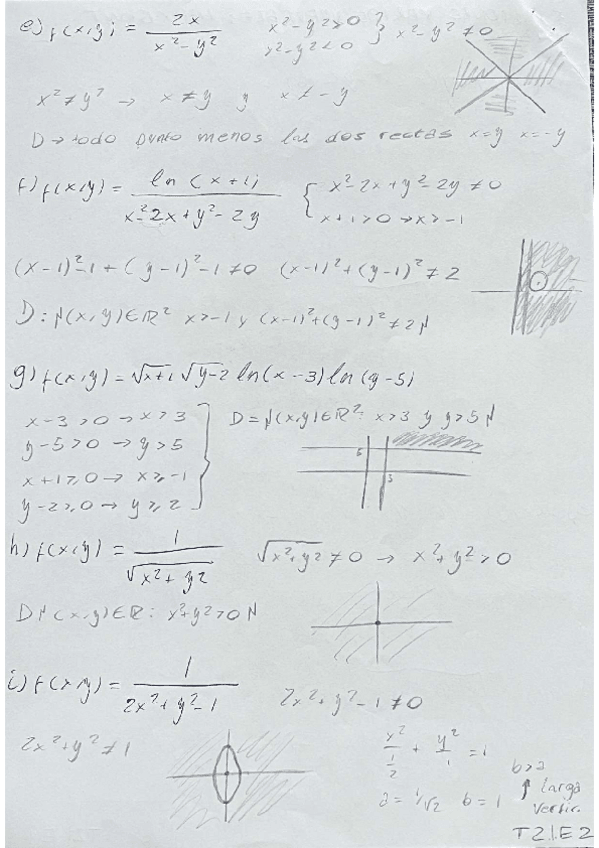 e) f(x,y) = 2x / (x² - y²)   x² - y² > 0   x² - y² < 0 } x² - y² ≠ 0
x² ≠ y² → x ≠ y y x ≠ -y
D → todo punto menos las dos rectas x=y x=-y
f) f(x,y) = ln(x+1) / (x² - 2x + y² - 2y)   { x² - 2x + y² - 2y ≠ 0
x+1 > 0 → x > -1
(x-1)² - 1 + (y-1)² - 1 ≠ 0   (x-1)² + (y-1)² ≠ 2
D: {(x,y) ∈ ℝ² x > -1 y (x-1)² + (y-1)² ≠ 2}
g) f(x,y) = √(x+1) √(y-2) ln(x-3) ln(y-5)
x-3 > 0 → x > 3
y-5 > 0 → y > 5
x+1 ≥ 0 → x ≥ -1
y-2 ≥ 0 → y ≥ 2
D = {(x,y) ∈ ℝ²: x > 3 y y > 5}
5
3
h) f(x,y) = 1 / √(x² + y²)   √(x² + y²) ≠ 0 → x² + y² > 0
D {(x,y) ∈ ℝ: x² + y² > 0}
i) f(x,y) = 1 / (2x² + y² - 1)   2x² + y² - 1 ≠ 0
2x² + y² ≠ 1
x² / (1/2) + y² / 1 = 1
a = 1/√2   b = 1
b > a
↑ larga
vertic.
T2 1.E2